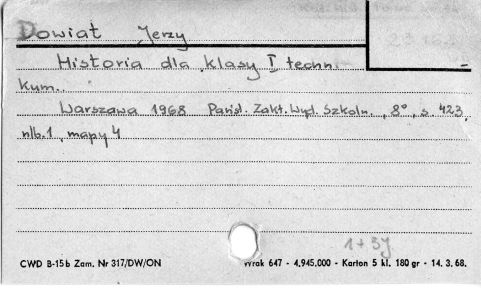 Dowiat Jerzy
Historia dla klasy I techn.
kum.
Warszawa 1968 Państ. Zakł. Wyd. Szkoln., 8°, s. 423,
nlb. 1, mapy 4
1+3y
CWD B-15b Zam. Nr 317/DW/ON
Wrak 647 - 4,945.000 - Karton 5 kl. 180 gr - 14. 3. 68.